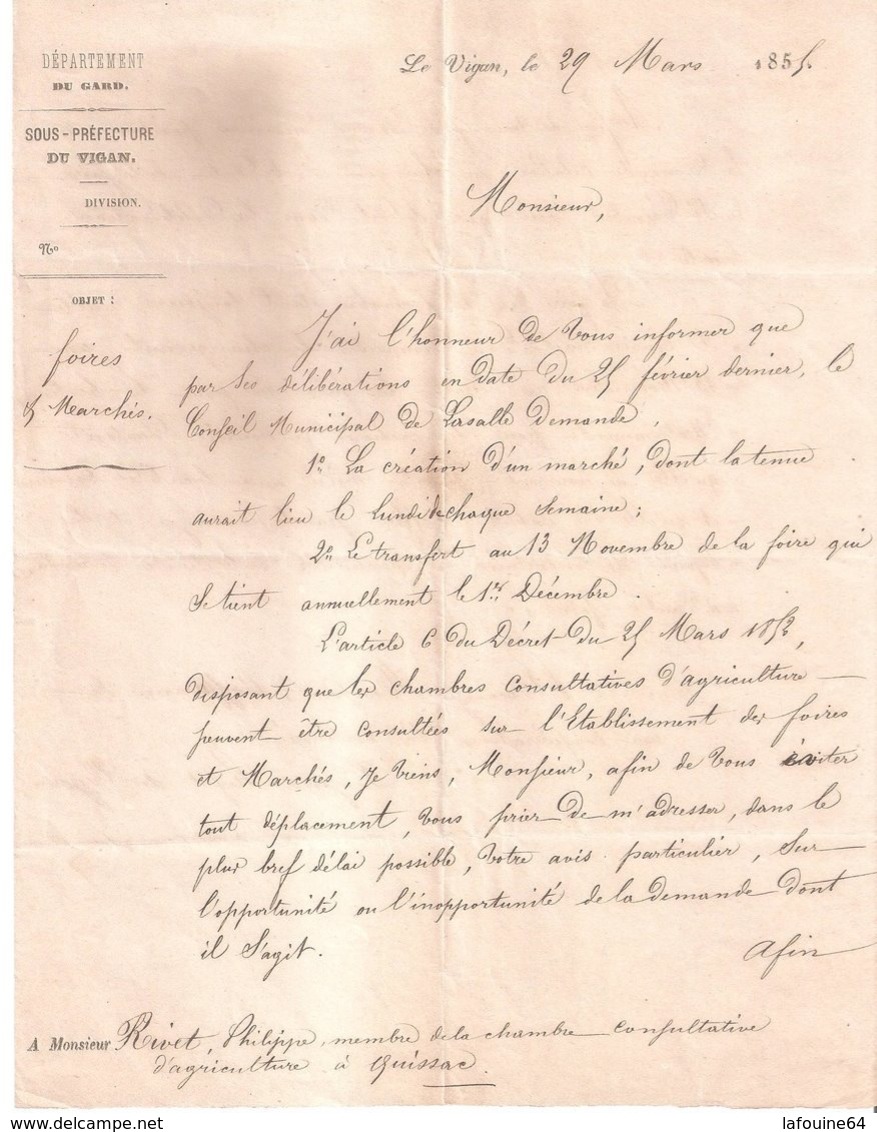 DÉPARTEMENT
DU GARD.
SOUS-PRÉFECTURE
DU VIGAN.
DIVISION.
No
OBJET :
foires
& Marchés.
Le Vigan, le 29 Mars 1855.
Monsieur,
J'ai l'honneur de Vous informer que
par ses délibérations en date du 25 février dernier, le
Conseil Municipal de Lasalle demande,
1o La création d'un marché, dont la tenue
aurait lieu le lundi de chaque semaine ;
2o Le transfert au 13 Novembre de la foire qui
se tient annuellement le 1er Décembre.
L'article 6 du Décret du 25 Mars 1852,
disposant que les chambres consultatives d'agriculture
peuvent être consultées sur l'Etablissement des foires
et Marchés, je viens, Monsieur, afin de Vous éviter
tout déplacement, Vous prier de m'adresser, dans le
plus bref délai possible, Votre avis particulier, sur
l'opportunité ou l'inopportunité de la demande dont
il s'agit.
Afin
A Monsieur Rivet, Philippe, membre de la chambre consultative
d'agriculture à Quissac.
lafouine64